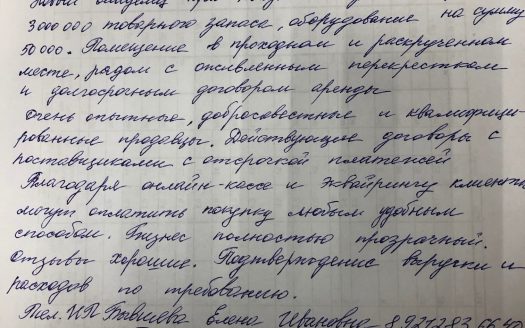 3 000 000 товарного запаса, оборудование на сумму
50 000. Помещение в проходном и раскрученном
месте, рядом с оживленным перекрестком
и долгосрочным договором аренды
Очень опытные, добросовестные и квалифици-
рованные продавцы. Действующие договоры с
поставщиками с отсрочкой платежей
Благодаря онлайн-кассе и эквайрингу клиенты
могут оплатить покупку любым удобным
способом. Бизнес полностью прозрачный.
Отзывы хорошие. Подтверждение выручки и
расходов по требованию.
Тел. ИП Елена Ивановна